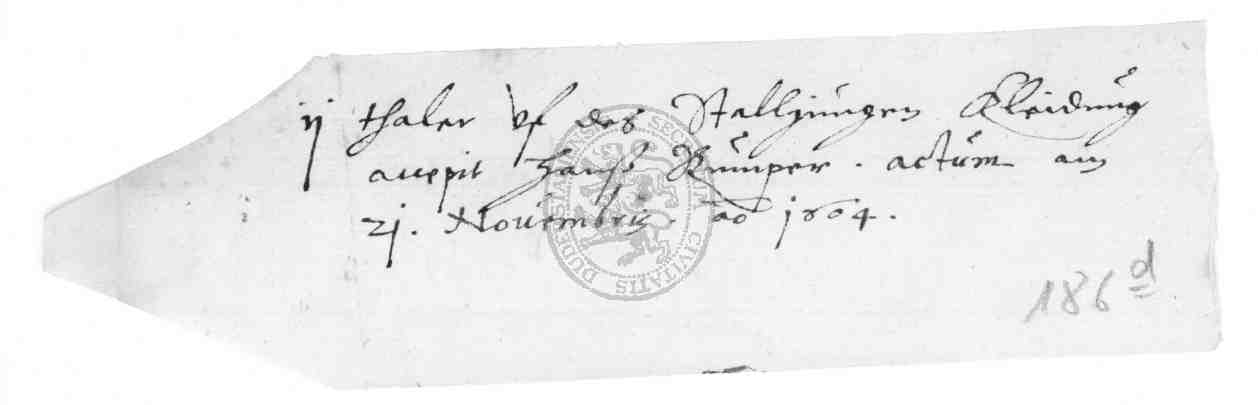 ij thaler vf des Stalljungen Kleidung
accepit Hanß Kumper . actum am
21. Novembris. ao 1604.
186 d
SECRETUM CIVITATIS DUDERSTADENSIS